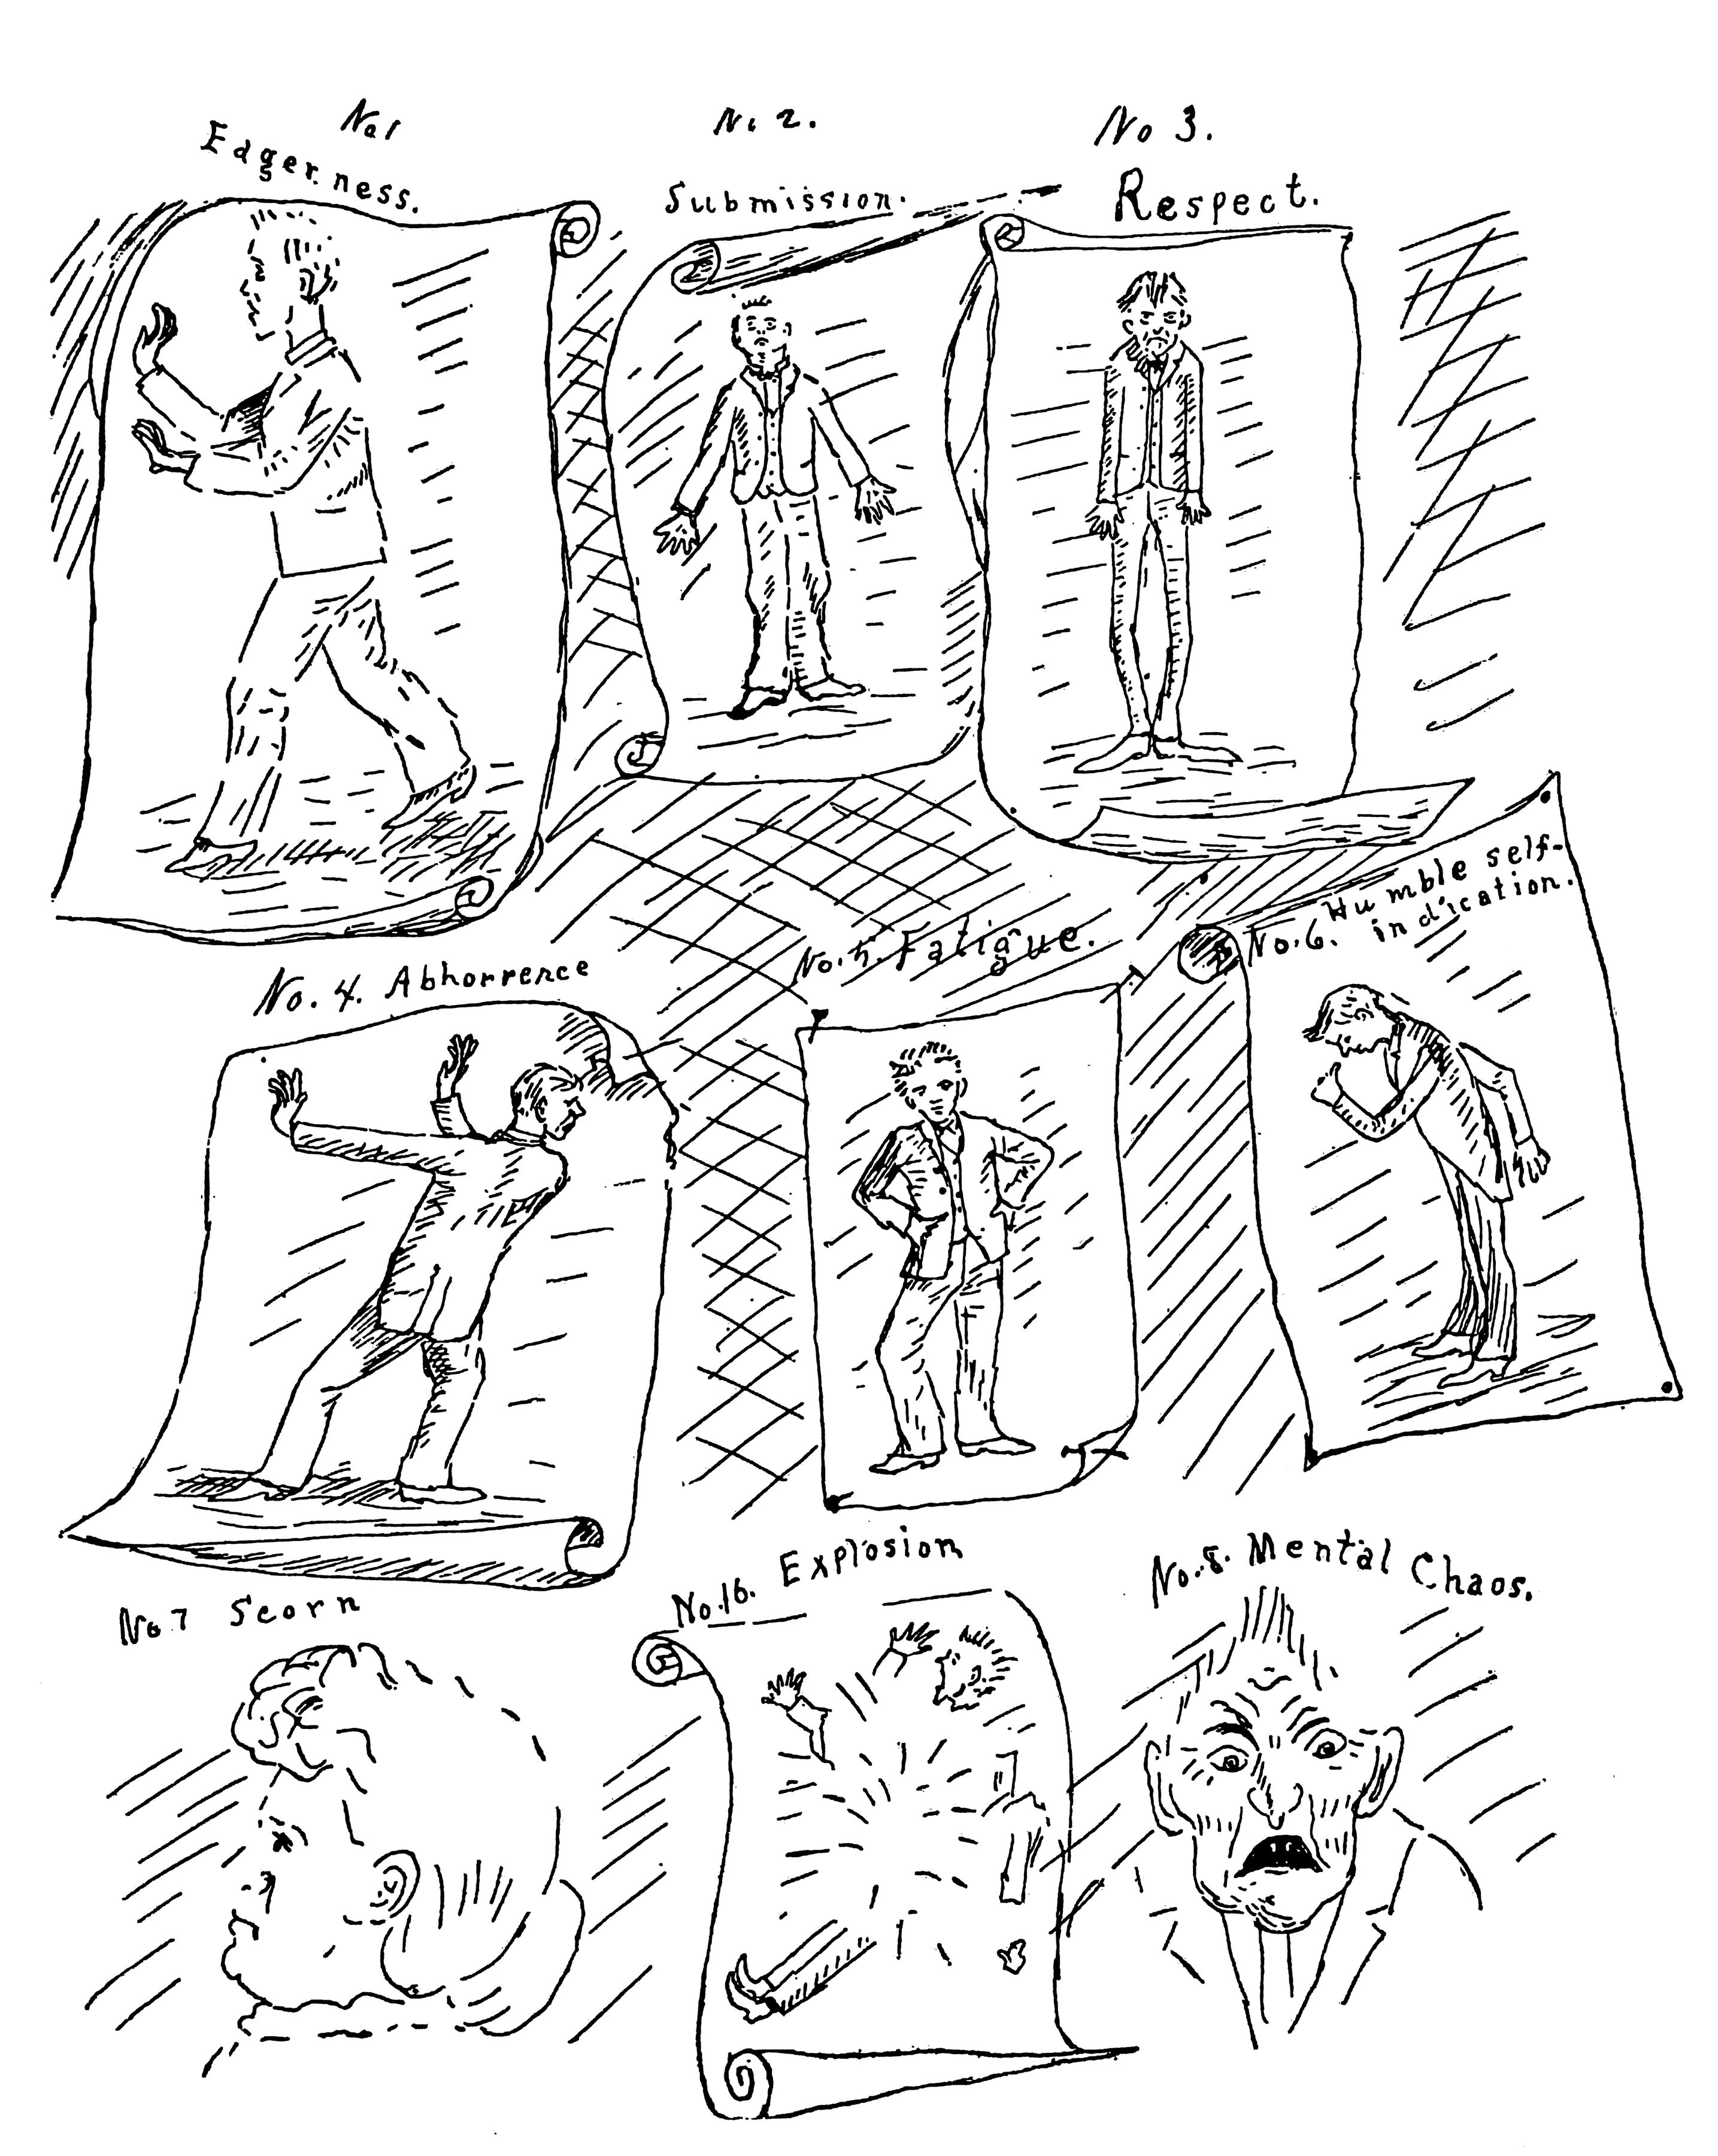 No 1
Eagerness.
No 2.
Submission.
No 3.
Respect.
No. 4. Abhorrence
No. 5. Fatigue.
No. 6. Humble self-
indication.
No 7 Scorn
No. 10. Explosion
No. 8. Mental Chaos.